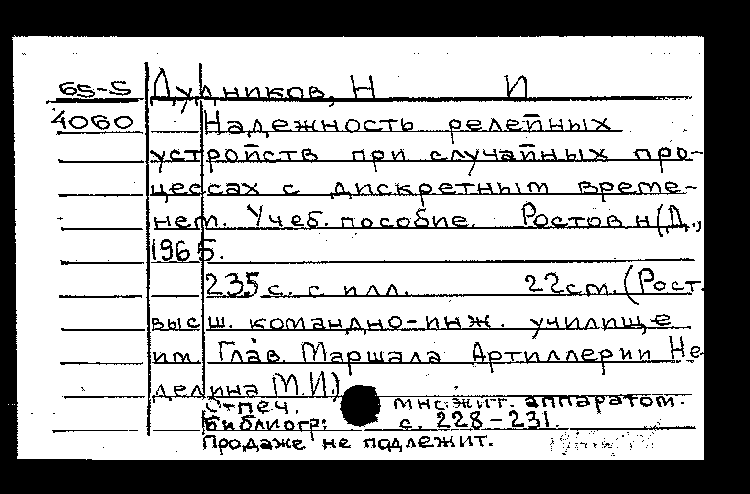 65-5 Дудников, Н И
4060 Надежность релейных
устройств при случайных про-
цессах с дискретным време-
нем. Учеб. пособие. Ростов н/Д.,
1965.
235 с. с илл. 22 см. (Рост.
высш. командно-инж. училище
им. Глав. Маршала Артиллерии Не-
делина М.И.)
Отпеч. множит. аппаратом.
Библиогр: с. 228-231.
Продаже не подлежит.